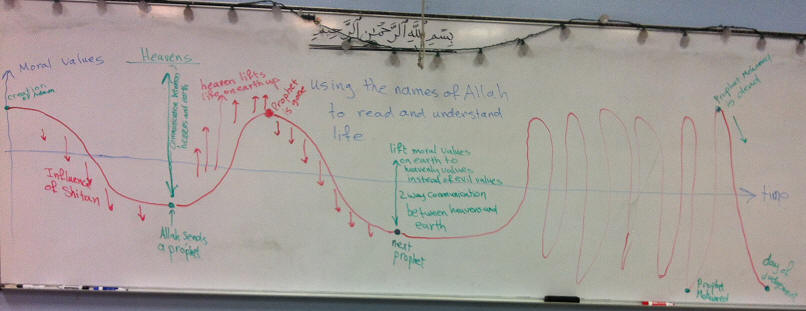 بسم الله الرحمن الرحيم
Moral values
Heavens
creation
of Adam
communication between
heavens and earth
heaven lifts
life on earth up
Prophet
is gone
using the names of Allah
to read and understand
life
Influence
of Shitan
Allah Sends
a prophet
lift moral values
on earth to
heavenly values
instead of evil values
2 way communication
between heavens and
earth
next
prophet
Prophet
is
time
Prophet
day of
judgement